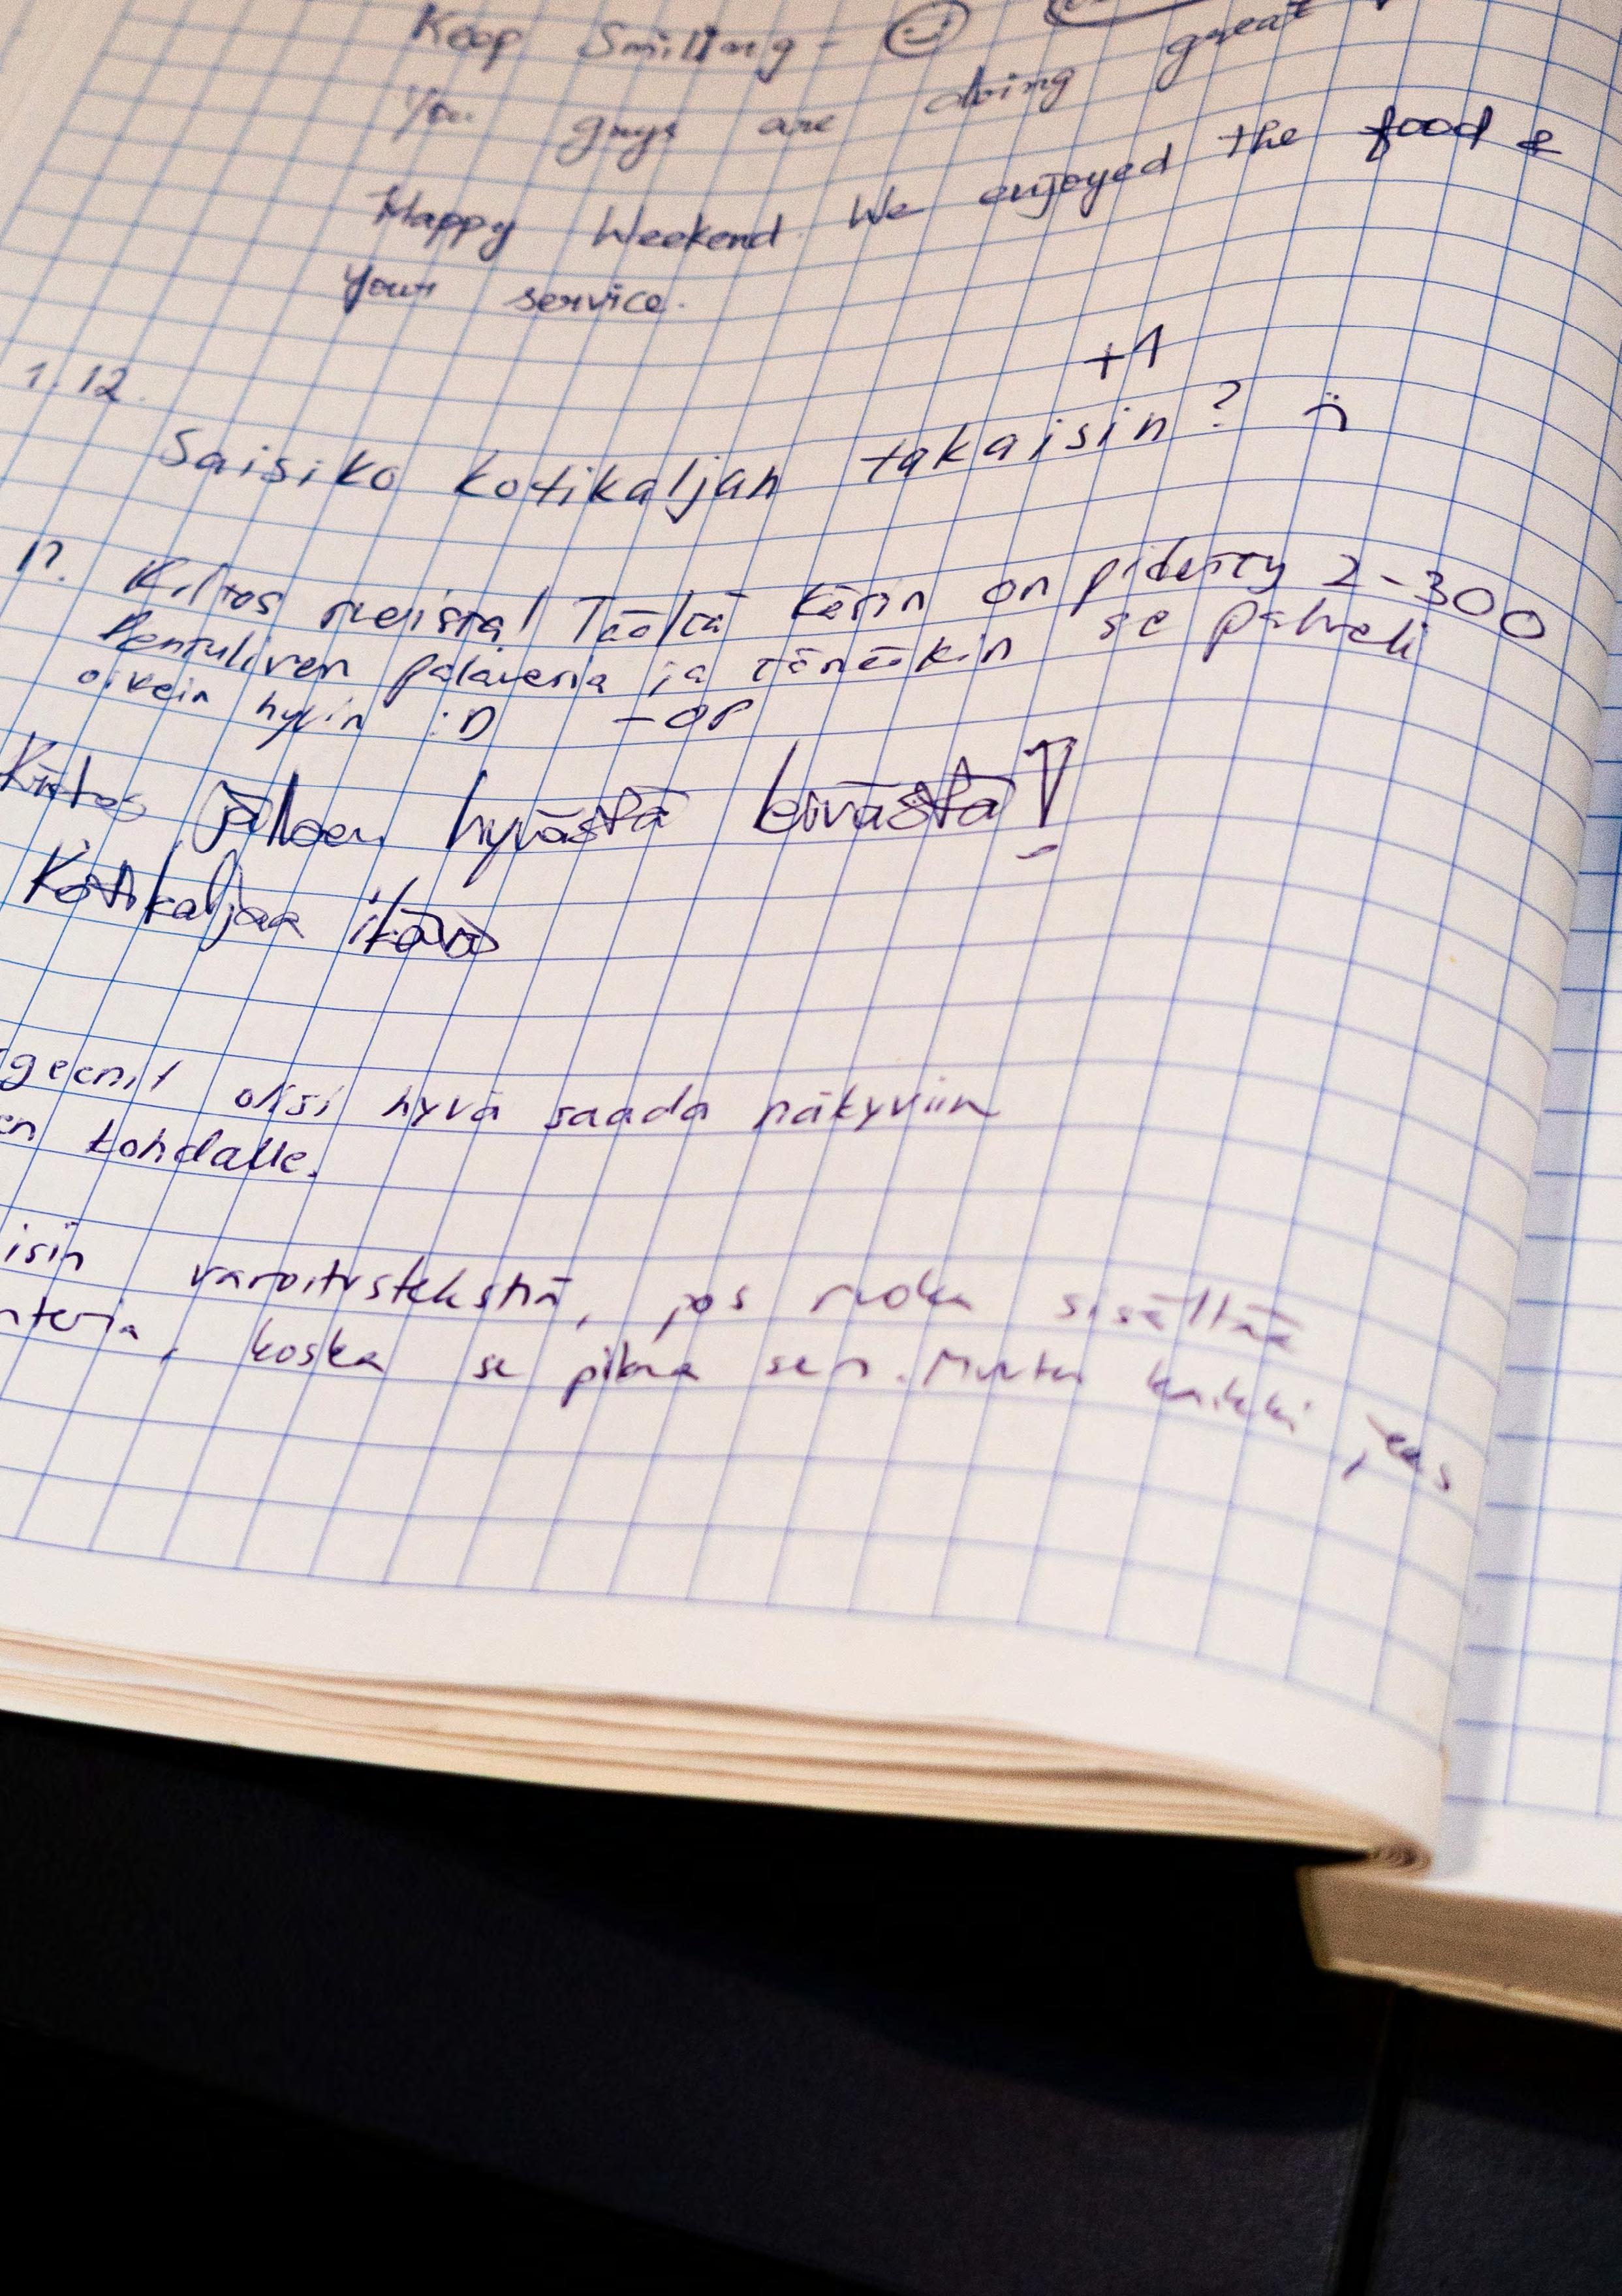 Keep Smiling - ☺
You guys are doing great
Happy Weekend. We enjoyed the food &
your service.
+1
1.12.
Saisiko kotikaljan takaisin? :(
Kiitos ruoista! Täältä käsin on pidetty 2-300
Pentuliven palaveria ja tänäkin se palveli
oikein hyvin :D -OP
Kiitos jälleen hyvästä leivästä!
Kotikaljaa ikävä
geenit olisi hyvä saada näkyviin
en kohdalle.
isin varoitustekstiä, jos ruoka sisältää
nteria, koska se pilaa sen. Mutta kaikki jees